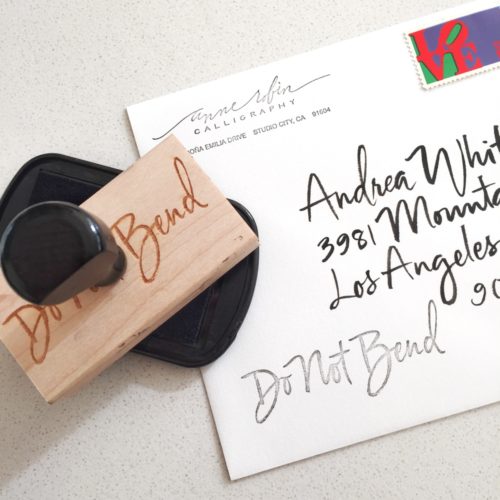 LOVE
anne robin
CALLIGRAPHY
DOÑA EMILIA DRIVE STUDIO CITY, CA 91604
Andrea Whit
3981 Mounta
Los Angeles
90
Do Not Bend
Do Not Bend